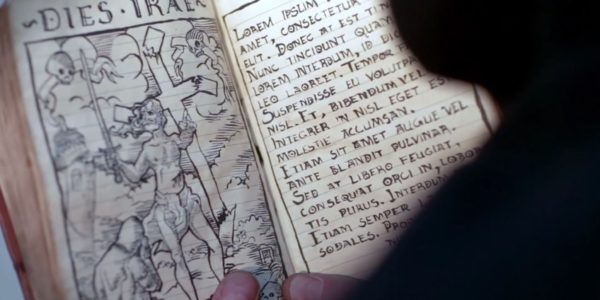 ~DIES IRAE
LOREM IPSUM
AMET, CONSECTETUR
ELIT. DONEC AT EST
NUNC TINCIDUNT QUAM
LOREM INTERDUM, ID
LEO LAOREET. TEMPOR
SUSPENDISSE EU VOLUTPA
NISL. ET, BIBENDUM VEL
INTEGER IN NISL EGET ES
MOLESTIE ACCUMSAN.
ETIAM SIT AMET AUGUE VEL
ANTE BLANDIT PULVINAR.
SED AT LIBERO FEUGIAT,
CONSEQUAT ORCI IN, LOBOR
TIS PURUS. INTERDUM
ETIAM SEMPER
SODALES. PRO